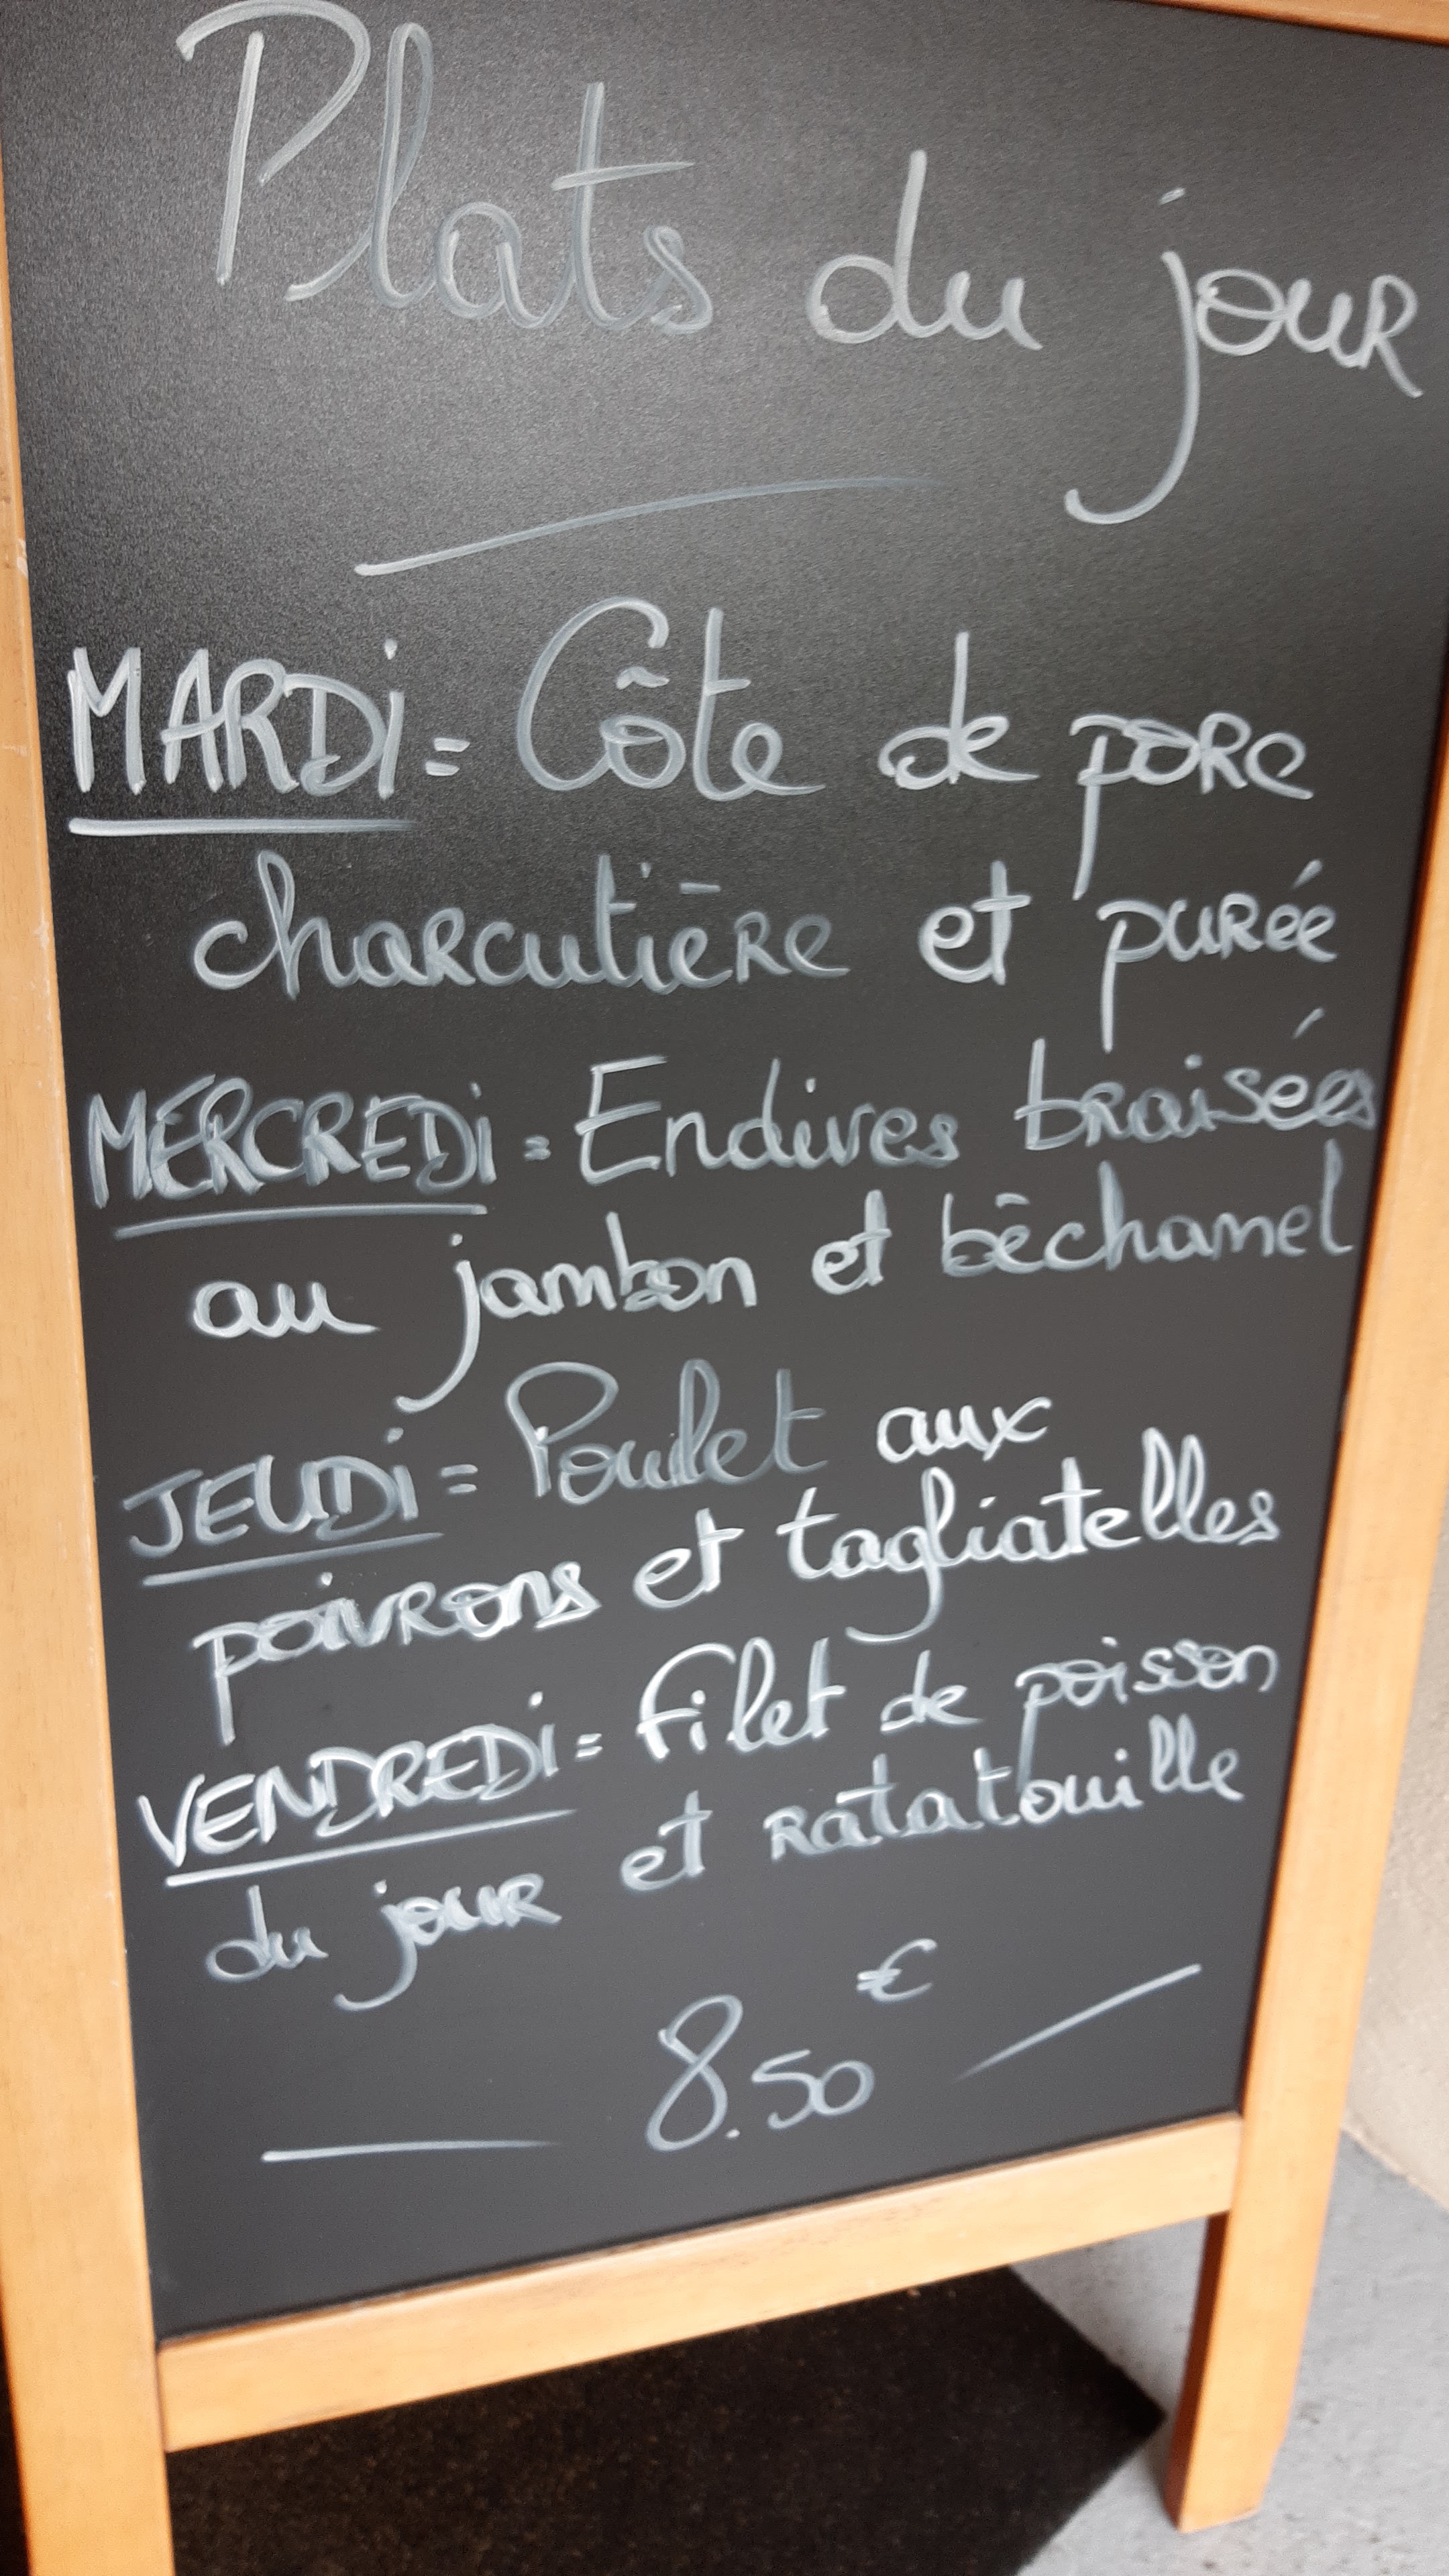 Plats du jour
MARDi = Côte de porc
charcutière et purée
MERCREDi = Endives braisées
au jambon et béchamel
JEUDi = Poulet aux
poivrons et tagliatelles
VENDREDi = Filet de poisson
du jour et ratatouille
8.50 €